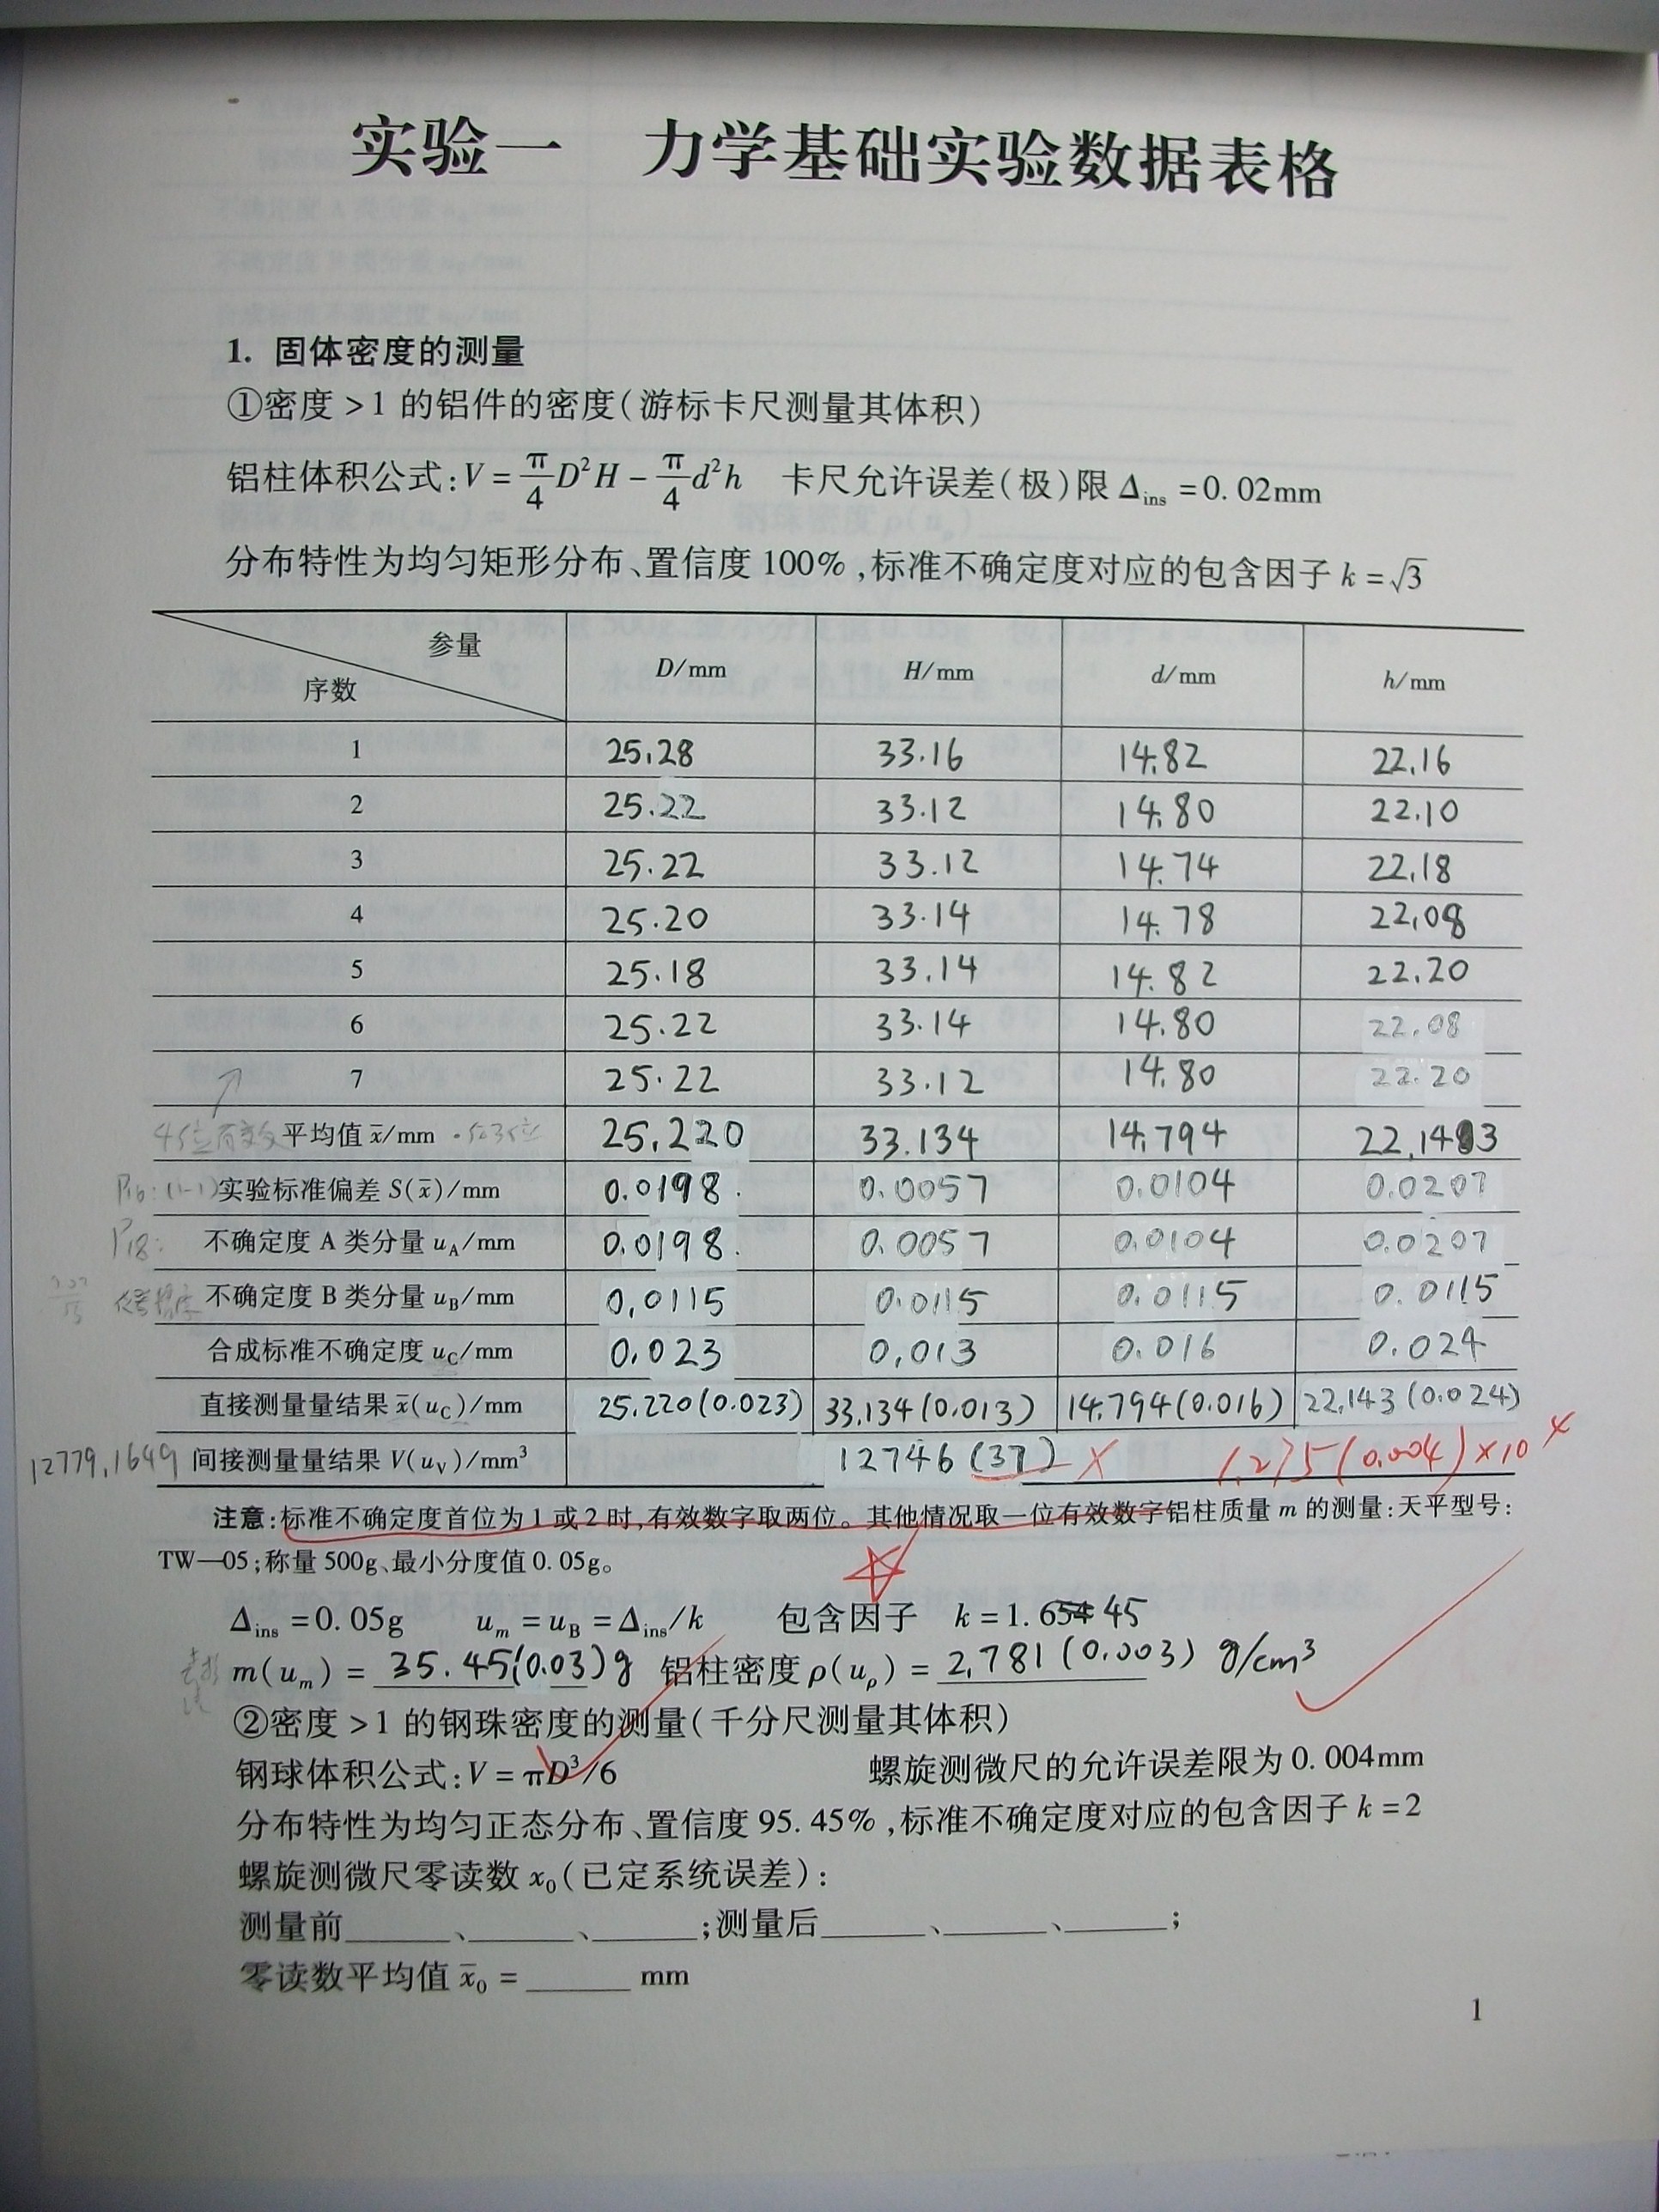 实验一 力学基础实验数据表格
1. 固体密度的测量
①密度>1 的铝件的密度(游标卡尺测量其体积)
铝柱体积公式:V = π/4 D²H − π/4 d²h 卡尺允许误差(极)限 Δins = 0.02mm
分布特性为均匀矩形分布、置信度 100%,标准不确定度对应的包含因子 k = √3
参量 序数 D/mm H/mm d/mm h/mm
1 25.28 33.16 14.82 22.16
2 25.22 33.12 14.80 22.10
3 25.22 33.12 14.74 22.18
4 25.20 33.14 14.78 22.08
5 25.18 33.14 14.82 22.20
6 25.22 33.14 14.80 22.08
7 25.22 33.12 14.80 22.20
4位有效 平均值 x̄/mm 25.220 33.134 14.794 22.143
P16:(1-1) 实验标准偏差 S(x̄)/mm 0.0198 0.0057 0.0104 0.0207
P18: 不确定度 A 类分量 uA/mm 0.0198 0.0057 0.0104 0.0207
不确定度 B 类分量 uB/mm 0.0115 0.0115 0.0115 0.0115
合成标准不确定度 uC/mm 0.023 0.013 0.016 0.024
直接测量量结果 x̄(uC)/mm 25.220(0.023) 33.134(0.013) 14.794(0.016) 22.143(0.024)
12779.1649 间接测量量结果 V(uV)/mm³ 12746(37) × 1.275(0.004)×10⁴
注意:标准不确定度首位为 1 或 2 时,有效数字取两位。其他情况取一位有效数字铝柱质量 m 的测量:天平型号:
TW—05;称量 500g、最小分度值 0.05g。
Δins = 0.05g um = uB = Δins/k 包含因子 k = 1.645
m(um) = 35.45(0.03)g 铝柱密度 ρ(uρ) = 2.781(0.003) g/cm³
②密度>1 的钢珠密度的测量(千分尺测量其体积)
钢球体积公式:V = πD³/6 螺旋测微尺的允许误差限为 0.004mm
分布特性为均匀正态分布、置信度 95.45%,标准不确定度对应的包含因子 k = 2
螺旋测微尺零读数 x₀(已定系统误差):
测量前______、______、______;测量后______、______、______;
零读数平均值 x̄₀ = ______ mm
1